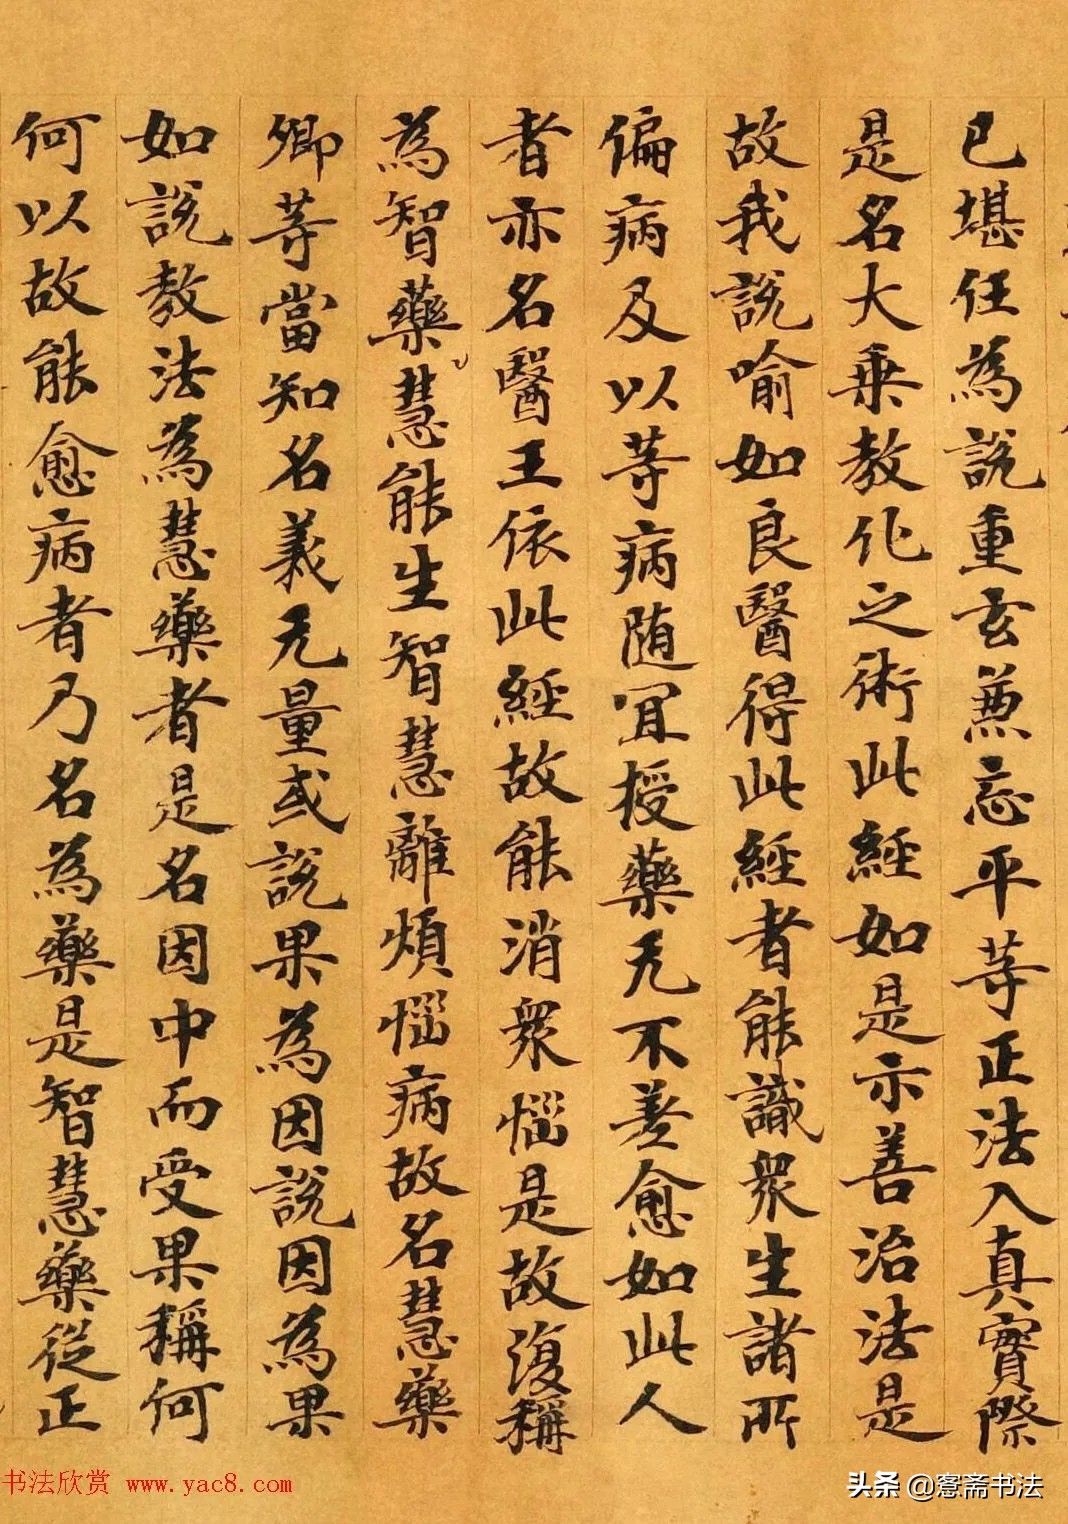 已堪任為說重玄兼忘平等正法入真實際
是名大乗教化之術此經如是亦善治法是
故我說喻如良醫得此經者能識衆生諸所
偏病及以等病随宜授藥无不善愈如此人
者亦名醫王依此經故能消衆惱是故復稱
為智藥慧能生智慧離煩惱病故名慧藥
卿等當知名義无量或說果為因說因為果
如說教法為慧藥者是名因中而受果稱何
何以故能愈病者乃名為藥是智慧藥從正
书法欣赏 www.yac8.com
头条 @窓斋书法